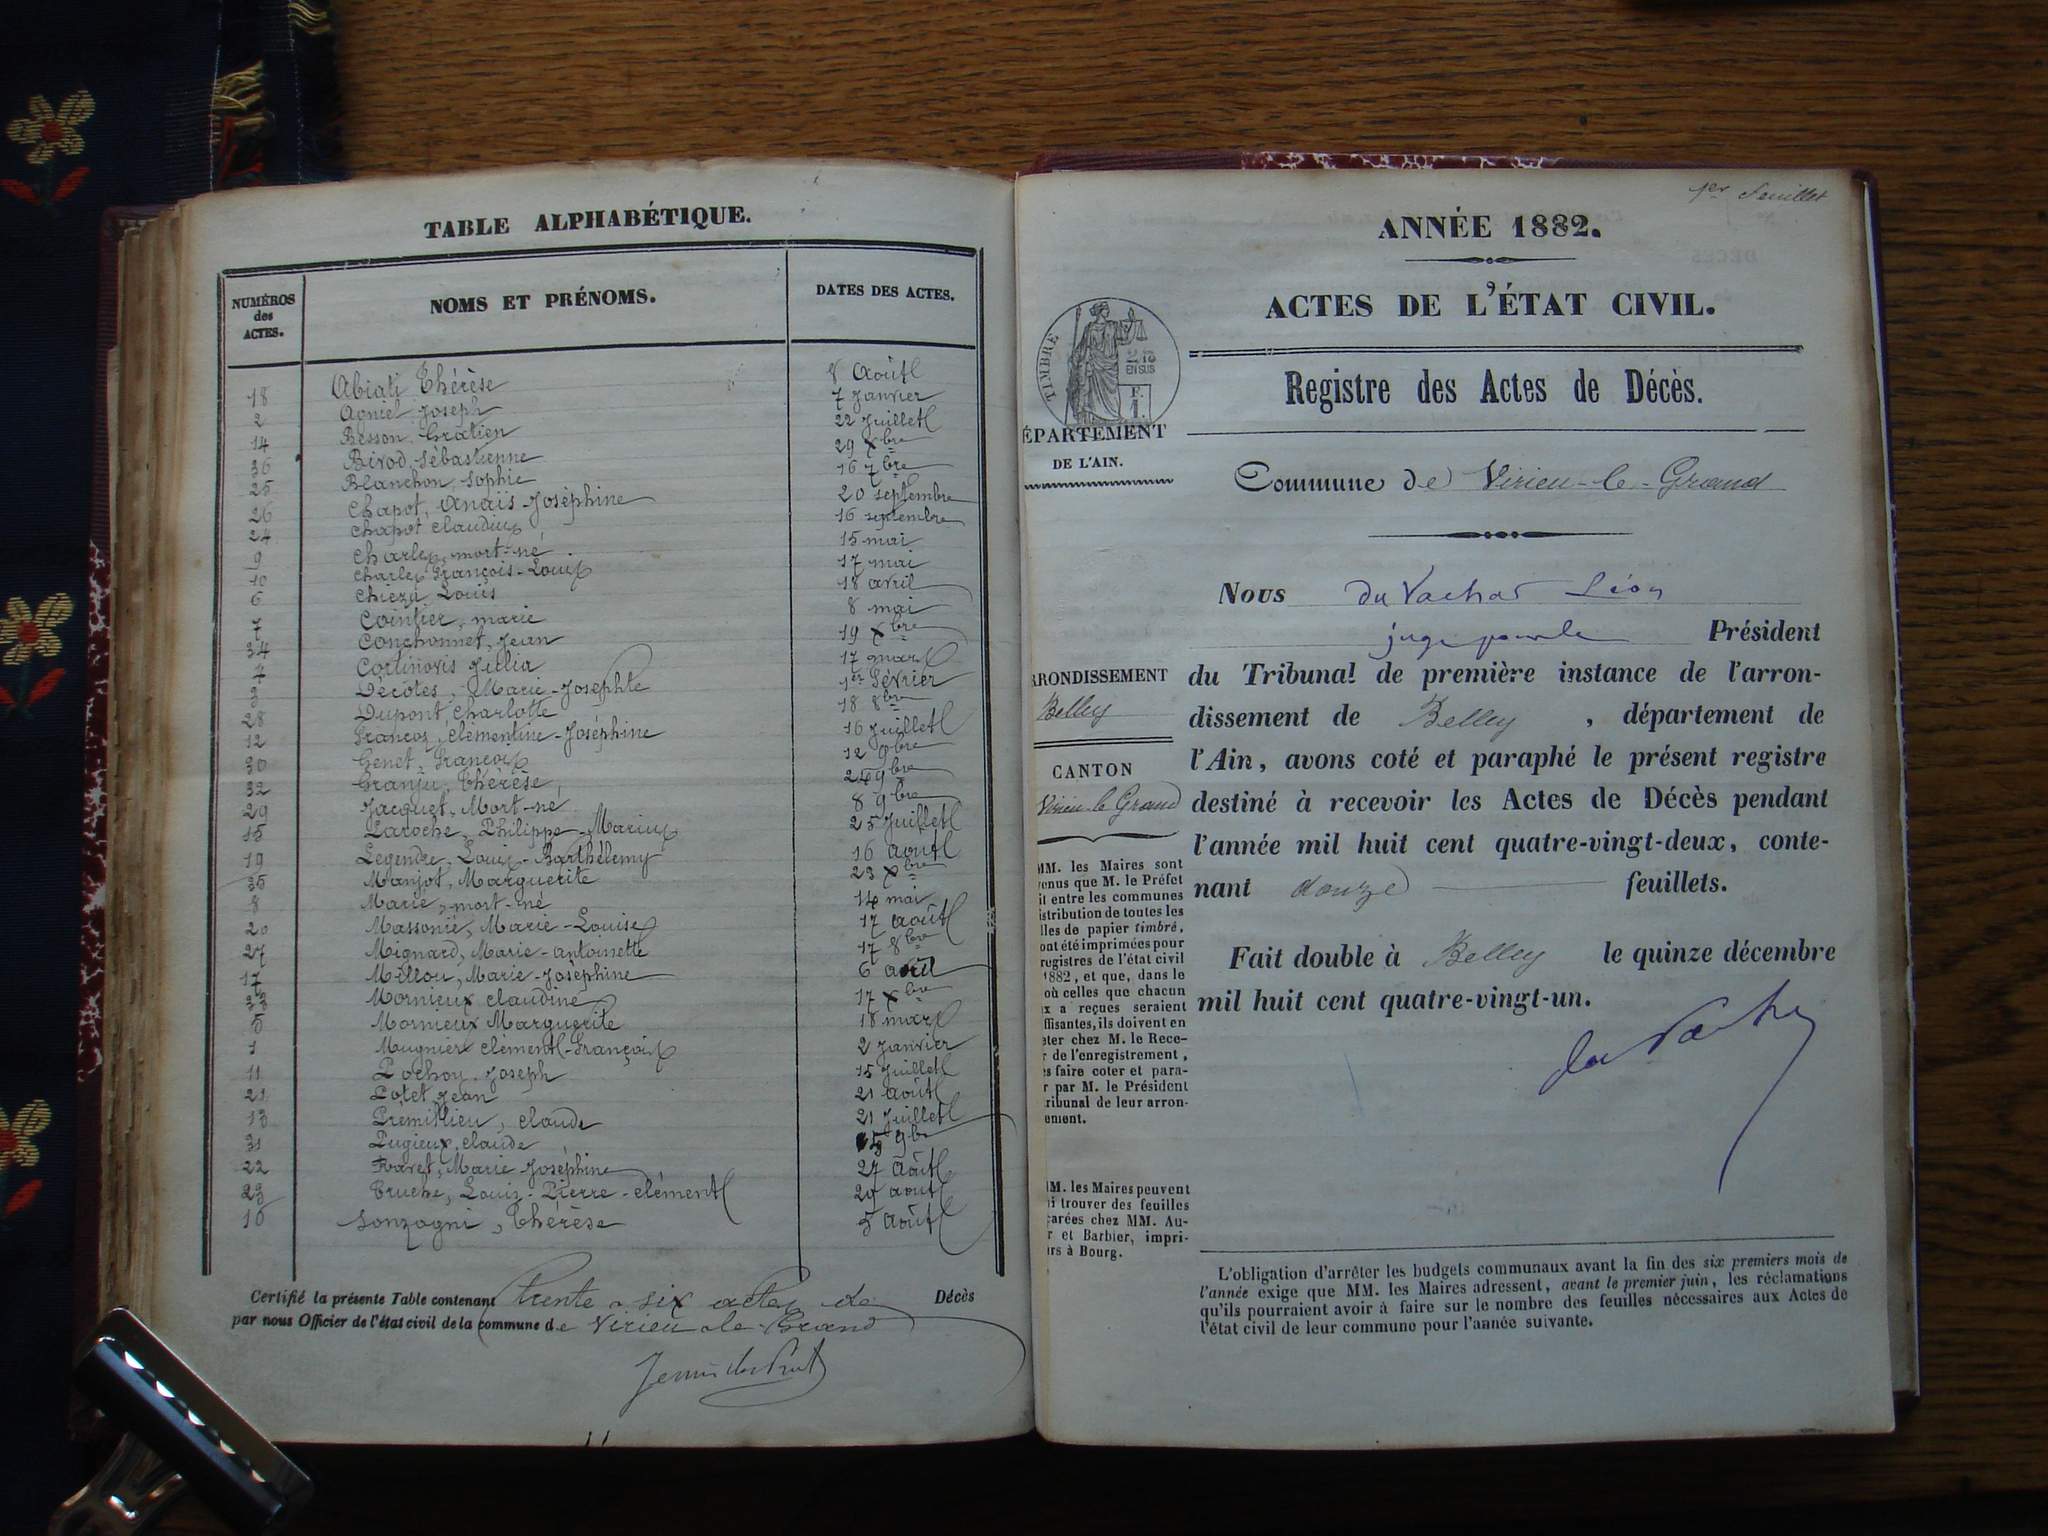 TABLE ALPHABÉTIQUE.
NUMÉROS des ACTES. NOMS ET PRÉNOMS. DATES DES ACTES.
18 Abiati Thérèse 8 Août
2 Agniel Joseph 7 Janvier
14 Besson Gratien 22 Juillet
36 Birod Sébastienne 29 Xbre
25 Blanchon, Sophie 16 7bre
26 Chapot, Anaïs-Joséphine 20 septembre
24 Chapot Claudius 16 septembre
9 Charles, mort-né 15 mai
10 Charles François-Louis 17 mai
6 Chieza Louis 18 avril
7 Cointier, marie 8 mai
34 Conchonnet, Jean 19 Xbre
4 Cortinovis Julia 17 mars
3 Décotes, Marie-Josephte 1er Février
28 Dupont Charlotte 18 8bre
12 Françoz, Clémentine-Joséphine 16 Juillet
30 Genet, François 12 9bre
32 Granju, Thérèse 24 9bre
29 Jacquet, Mort-né 8 9bre
15 Laroche, Philippe-Marius 25 Juillet
19 Legendre, Louis-Barthélemy 16 août
35 Manjot, Marguerite 23 Xbre
8 Marie, mort-né 14 mai
20 Massonié, Marie-Louise 17 Août
27 Mignard, Marie-Antoinette 17 8bre
17 Millou, Marie-Joséphine 6 août
33 Mornieux Claudine 17 Xbre
5 Mornieux Marguerite 18 mars
1 Mugnier Clément-François 2 Janvier
11 Pochon, Joseph 15 Juillet
21 Potet Jean 21 Août
13 Prémillieu, Claude 21 Juillet
31 Pugieux, Claude 15 9bre
22 Ravet, Marie-Joséphine 27 Août
23 Truche, Louis-Pierre-Clément 29 août
16 Sonzogni, Thérèse 5 Août
Certifié la présente Table contenant trente-six actes de Décès
par nous Officier de l'état civil de la commune de Virieu-le-Grand
1er Feuillet
ANNÉE 1882.
ACTES DE L'ÉTAT CIVIL.
TIMBRE
2/10
EN SUS
F.
1.
Registre des Actes de Décès.
ÉPARTEMENT
DE L'AIN.
Commune de Virieu-le-Grand
Nous du Vachat Léon
juge pour le Président
RRONDISSEMENT
Belley
du Tribunal de première instance de l'arron-
dissement de Belley, département de
l'Ain, avons coté et paraphé le présent registre
destiné à recevoir les Actes de Décès pendant
l'année mil huit cent quatre-vingt-deux, conte-
nant douze feuillets.
CANTON
Virieu-le-Grand
MM. les Maires sont
venus que M. le Préfet
it entre les communes
istribution de toutes les
lles de papier timbré,
ont été imprimées pour
registres de l'état civil
1882, et que, dans le
où celles que chacun
x a reçues seraient
ffisantes, ils doivent en
eter chez M. le Rece-
r de l'enregistrement,
es faire coter et para-
r par M. le Président
ribunal de leur arron-
ement.
Fait double à Belley le quinze décembre
mil huit cent quatre-vingt-un.
du Vachat
M. les Maires peuvent
si trouver des feuilles
carées chez MM. Au-
r et Barbier, impri-
rs à Bourg.
L'obligation d'arrêter les budgets communaux avant la fin des six premiers mois de
l'année exige que MM. les Maires adressent, avant le premier juin, les réclamations
qu'ils pourraient avoir à faire sur le nombre des feuilles nécessaires aux Actes de
l'état civil de leur commune pour l'année suivante.